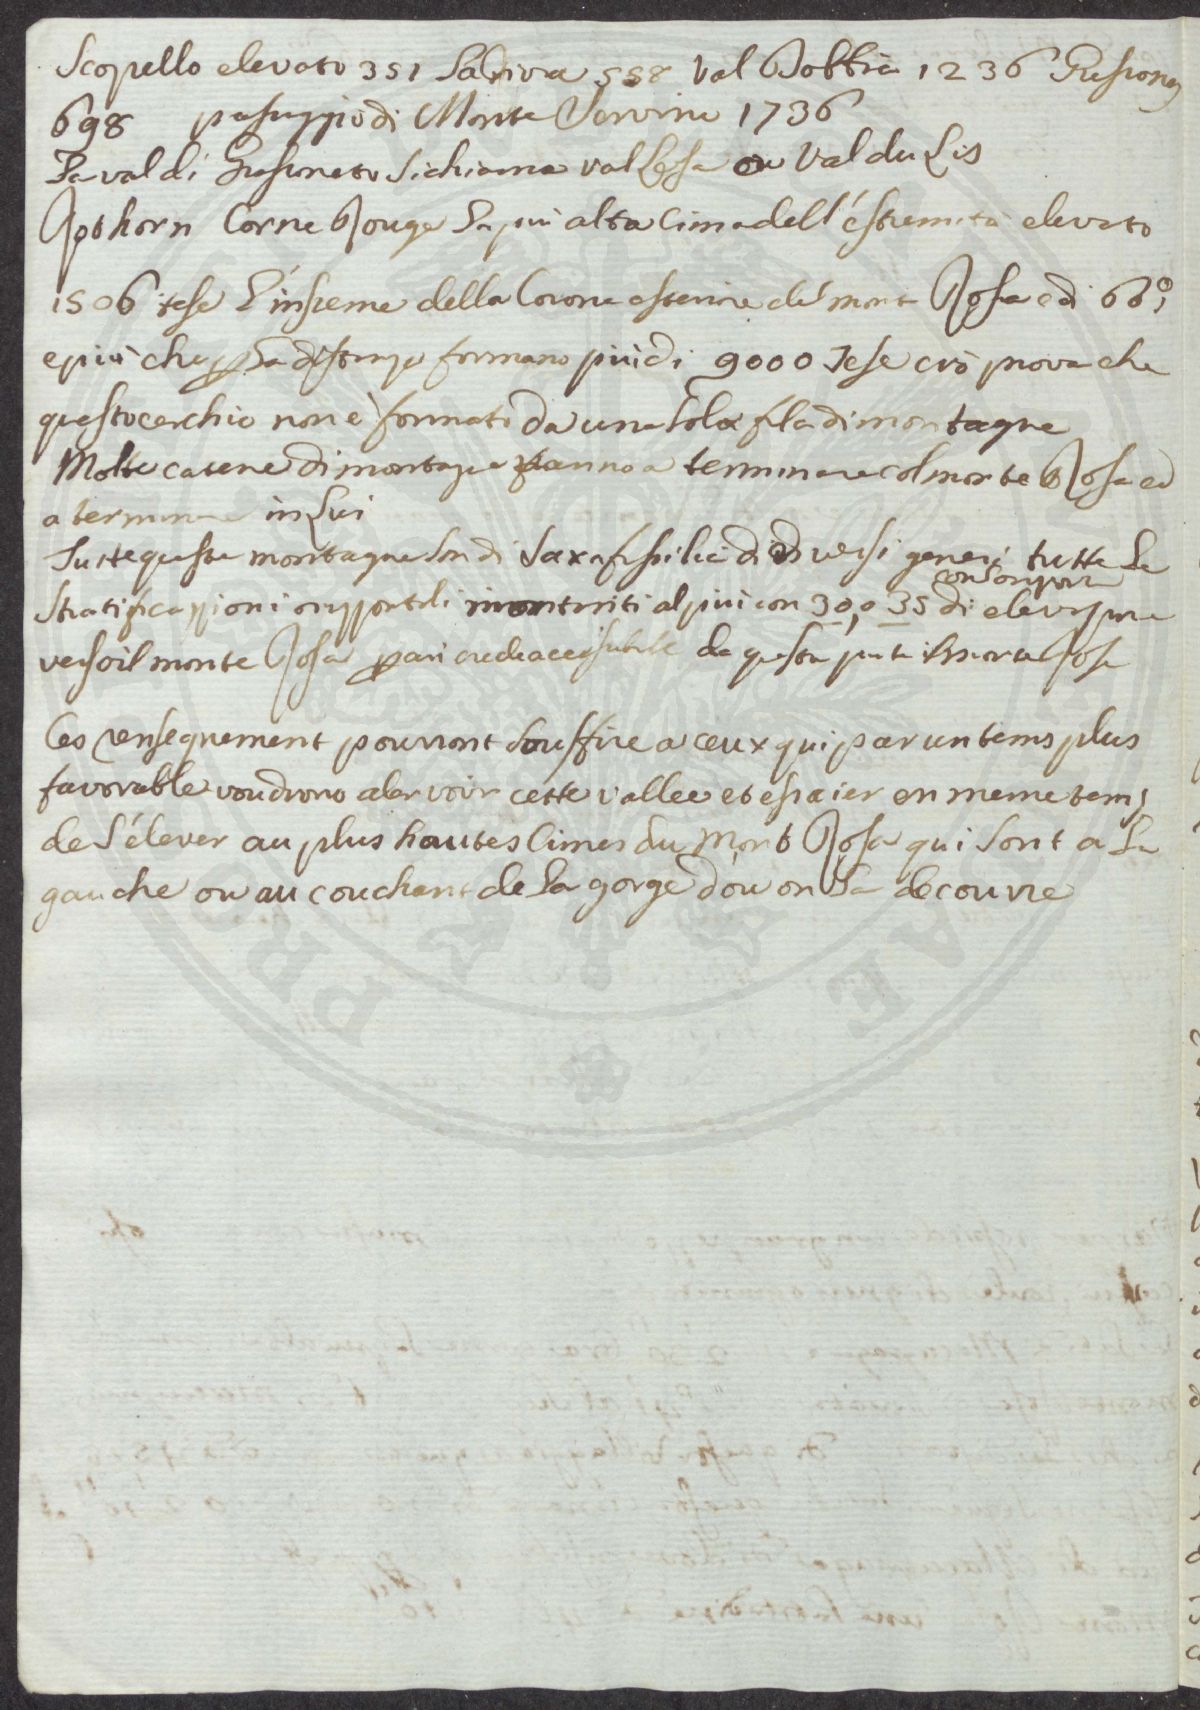 Scopello elevato 351 La Riva 558 Val Dobbia 1236 Gressoney
698 passaggio di Monte Cervino 1736
La val di Gressoneto si chiama val Lesa ou Val du Lis
Rothorn Corne Rouge la più alta Cima dell'éstremità elevato
1506 tese L'insieme della Corona esteriore del mont Rosa e di 66°,
e più che formano più di 9000 Tese ciò prova che
questo cerchio non è formato da una sola fila di montagne
Molte catene di montagne vanno a terminare col monte Rosa ed
a terminare in Lui
Tutte queste montagne son di saxa fissilia di diversi generi tutte le
con Conpora
stratificazioni orizzontali montanti al più con 30, o 35 di elevazione
verso il monte Rosa pari credea accessibile da questa parte il Monte Rosa
Ces rensegnement pourront souffire a ceux qui par un tems plus
favorable voudrono aler voir cette vallee et essaier en meme tems
de s'élever au plus hautes Cimes du Mont Rosa qui sont a La
gauche ou au couchant de La gorge d'ou on La decouvre